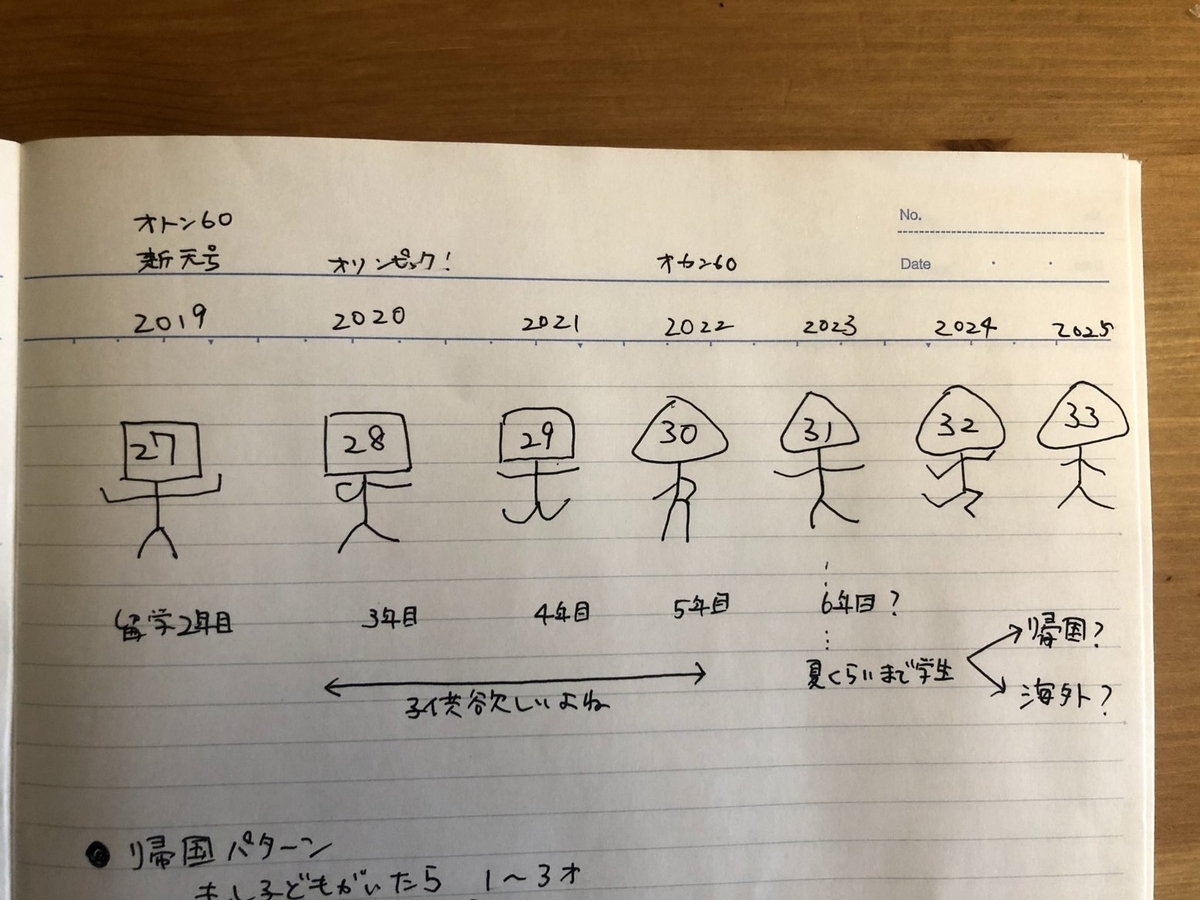 No.
オトン60
新元号 オリンピック! オカン60
Date
2019 2020 2021 2022 2023 2024 2025
27 28 29 30 31 32 33
留学2年目 3年目 4年目 5年目 6年目?
帰国?
夏くらいまで学生
海外?
子供欲しいよね
● 帰国パターン
もし子どもがいたら 1〜3才